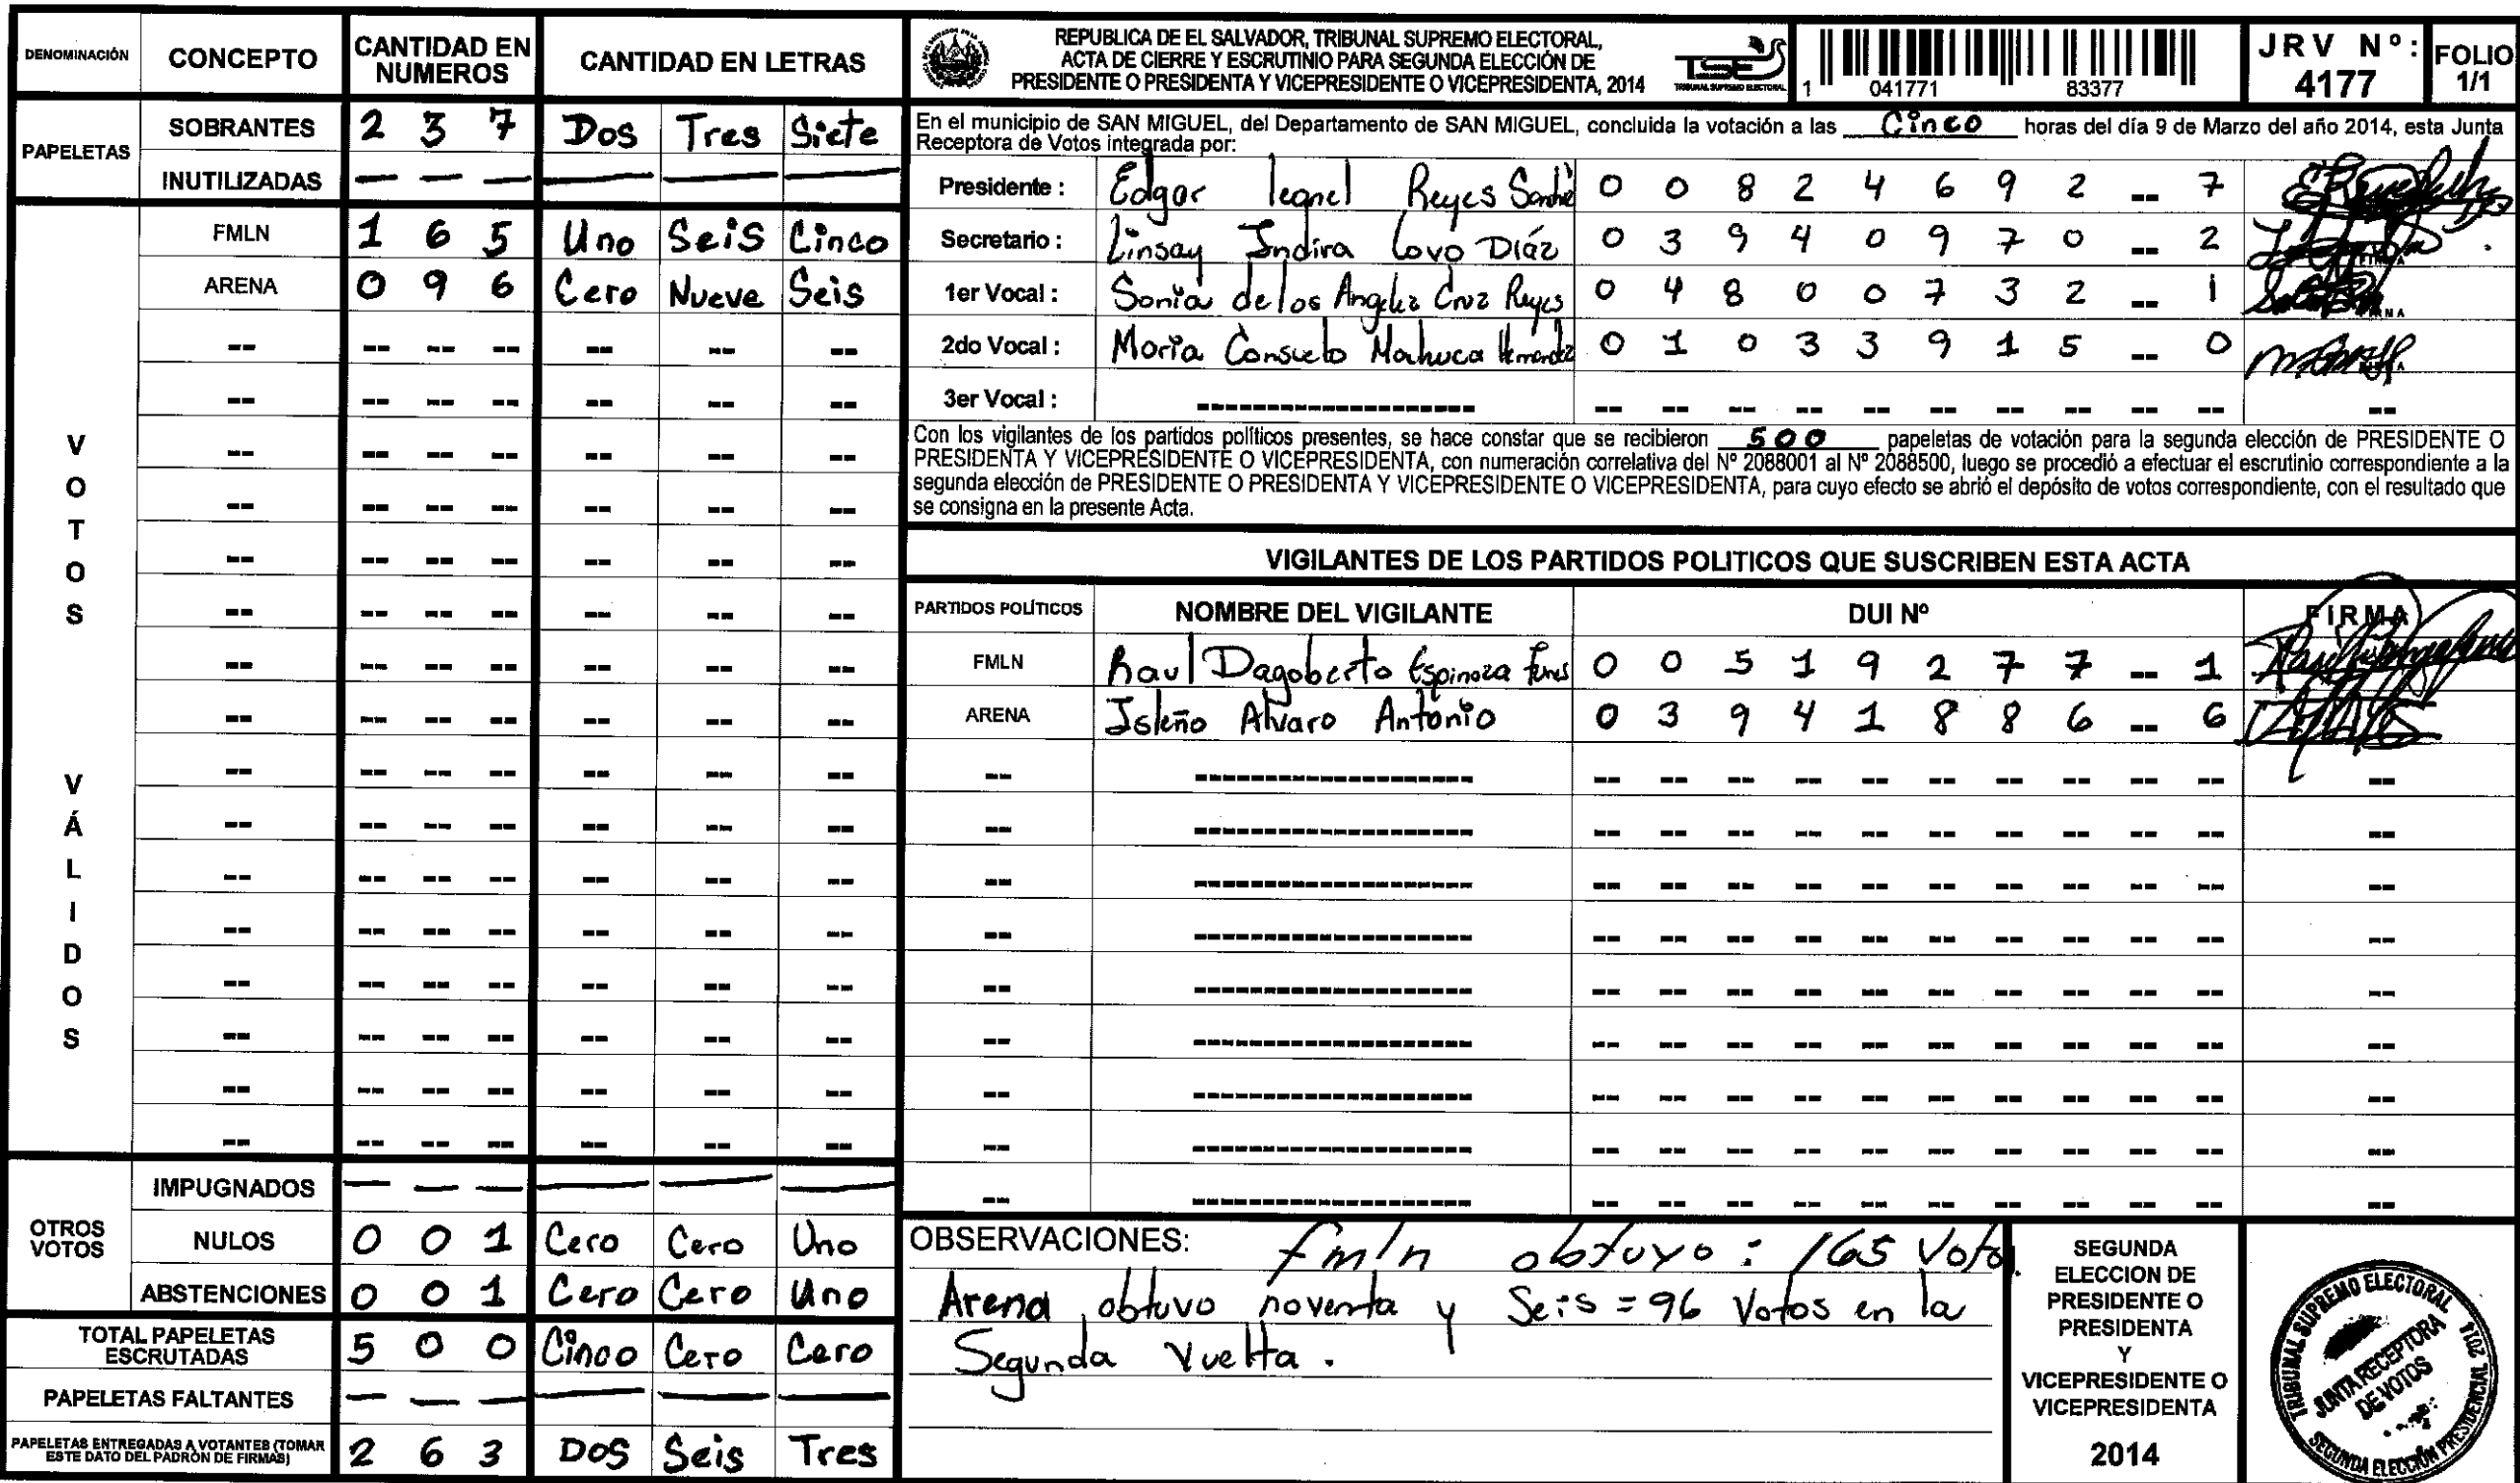 DENOMINACIÓN CONCEPTO CANTIDAD EN NUMEROS CANTIDAD EN LETRAS
PAPELETAS
SOBRANTES 2 3 7 Dos Tres Siete
INUTILIZADAS — — — — — —
VOTOS VÁLIDOS
FMLN 1 6 5 Uno Seis Cinco
ARENA 0 9 6 Cero Nueve Seis
OTROS VOTOS
IMPUGNADOS — — — — — —
NULOS 0 0 1 Cero Cero Uno
ABSTENCIONES 0 0 1 Cero Cero Uno
TOTAL PAPELETAS ESCRUTADAS 5 0 0 Cinco Cero Cero
PAPELETAS FALTANTES — — — — — —
PAPELETAS ENTREGADAS A VOTANTES (TOMAR ESTE DATO DEL PADRÓN DE FIRMAS) 2 6 3 Dos Seis Tres
REPUBLICA DE EL SALVADOR, TRIBUNAL SUPREMO ELECTORAL,
ACTA DE CIERRE Y ESCRUTINIO PARA SEGUNDA ELECCIÓN DE
PRESIDENTE O PRESIDENTA Y VICEPRESIDENTE O VICEPRESIDENTA, 2014
TSE
TRIBUNAL SUPREMO ELECTORAL
1 041771 83377
JRV Nº: 4177
FOLIO 1/1
En el municipio de SAN MIGUEL, del Departamento de SAN MIGUEL, concluida la votación a las Cinco horas del día 9 de Marzo del año 2014, esta Junta
Receptora de Votos integrada por:
Presidente : Edgar leonel Reyes 0 0 8 2 4 6 9 2 -- 7
Secretario : Linsay Indira Lovo Díaz 0 3 9 4 0 9 7 0 -- 2
1er Vocal : Sonia de los Angeles Cruz Reyes 0 4 8 0 0 7 3 2 -- 1
2do Vocal : Maria Consuelo Machuca Hernandez 0 1 0 3 3 9 1 5 -- 0
3er Vocal :
Con los vigilantes de los partidos políticos presentes, se hace constar que se recibieron 500 papeletas de votación para la segunda elección de PRESIDENTE O
PRESIDENTA Y VICEPRESIDENTE O VICEPRESIDENTA, con numeración correlativa del Nº 2088001 al Nº 2088500, luego se procedió a efectuar el escrutinio correspondiente a la
segunda elección de PRESIDENTE O PRESIDENTA Y VICEPRESIDENTE O VICEPRESIDENTA, para cuyo efecto se abrió el depósito de votos correspondiente, con el resultado que
se consigna en la presente Acta.
VIGILANTES DE LOS PARTIDOS POLITICOS QUE SUSCRIBEN ESTA ACTA
PARTIDOS POLÍTICOS NOMBRE DEL VIGILANTE DUI Nº FIRMA
FMLN Raul Dagoberto Espinoza Funes 0 0 5 1 9 2 7 7 -- 1
ARENA Isleño Alvaro Antonio 0 3 9 4 1 8 8 6 -- 6
OBSERVACIONES: fmln obtuvo : 165 Voto.
Arena obtuvo noventa y Seis = 96 Votos en la
Segunda Vuelta.
SEGUNDA
ELECCION DE
PRESIDENTE O
PRESIDENTA
Y
VICEPRESIDENTE O
VICEPRESIDENTA
2014
TRIBUNAL SUPREMO ELECTORAL 2014
JUNTA RECEPTORA
DE VOTOS
SEGUNDA ELECCIÓN PRESIDENCIAL